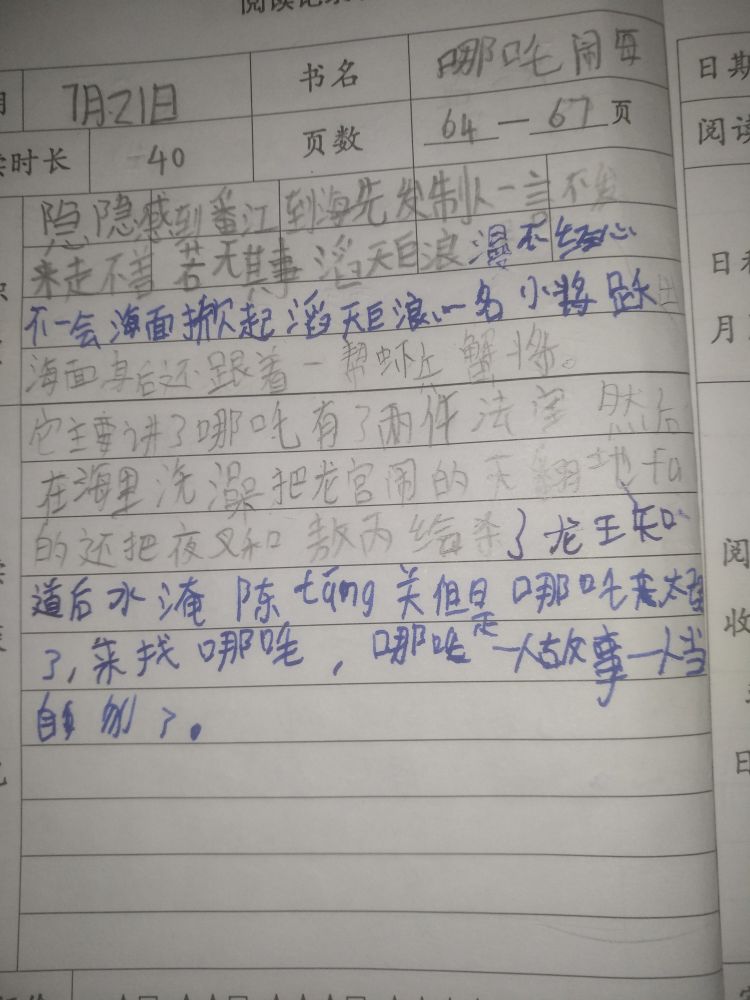 阅读记录
月 7月21日 书名 哪吒闹海 日期
时长 40 页数 64 — 67 页 阅读
隐隐感到番江到海先发制人一言不发
来走不着 若无其事 滔天巨浪 漫不经心
不一会海面掀起滔天巨浪、一名小将跃出
海面身后还跟着一帮虾兵蟹将。
它主要讲了哪吒有了两件法宝 然后
在海里洗澡把龙宫闹的天翻地fu
的还把夜叉和敖丙给杀了龙王知
道后水淹陈táng关但是哪吒太
了,来找哪吒,哪吒走一人故事一人当
自刎了。
日
月
阅
收
日